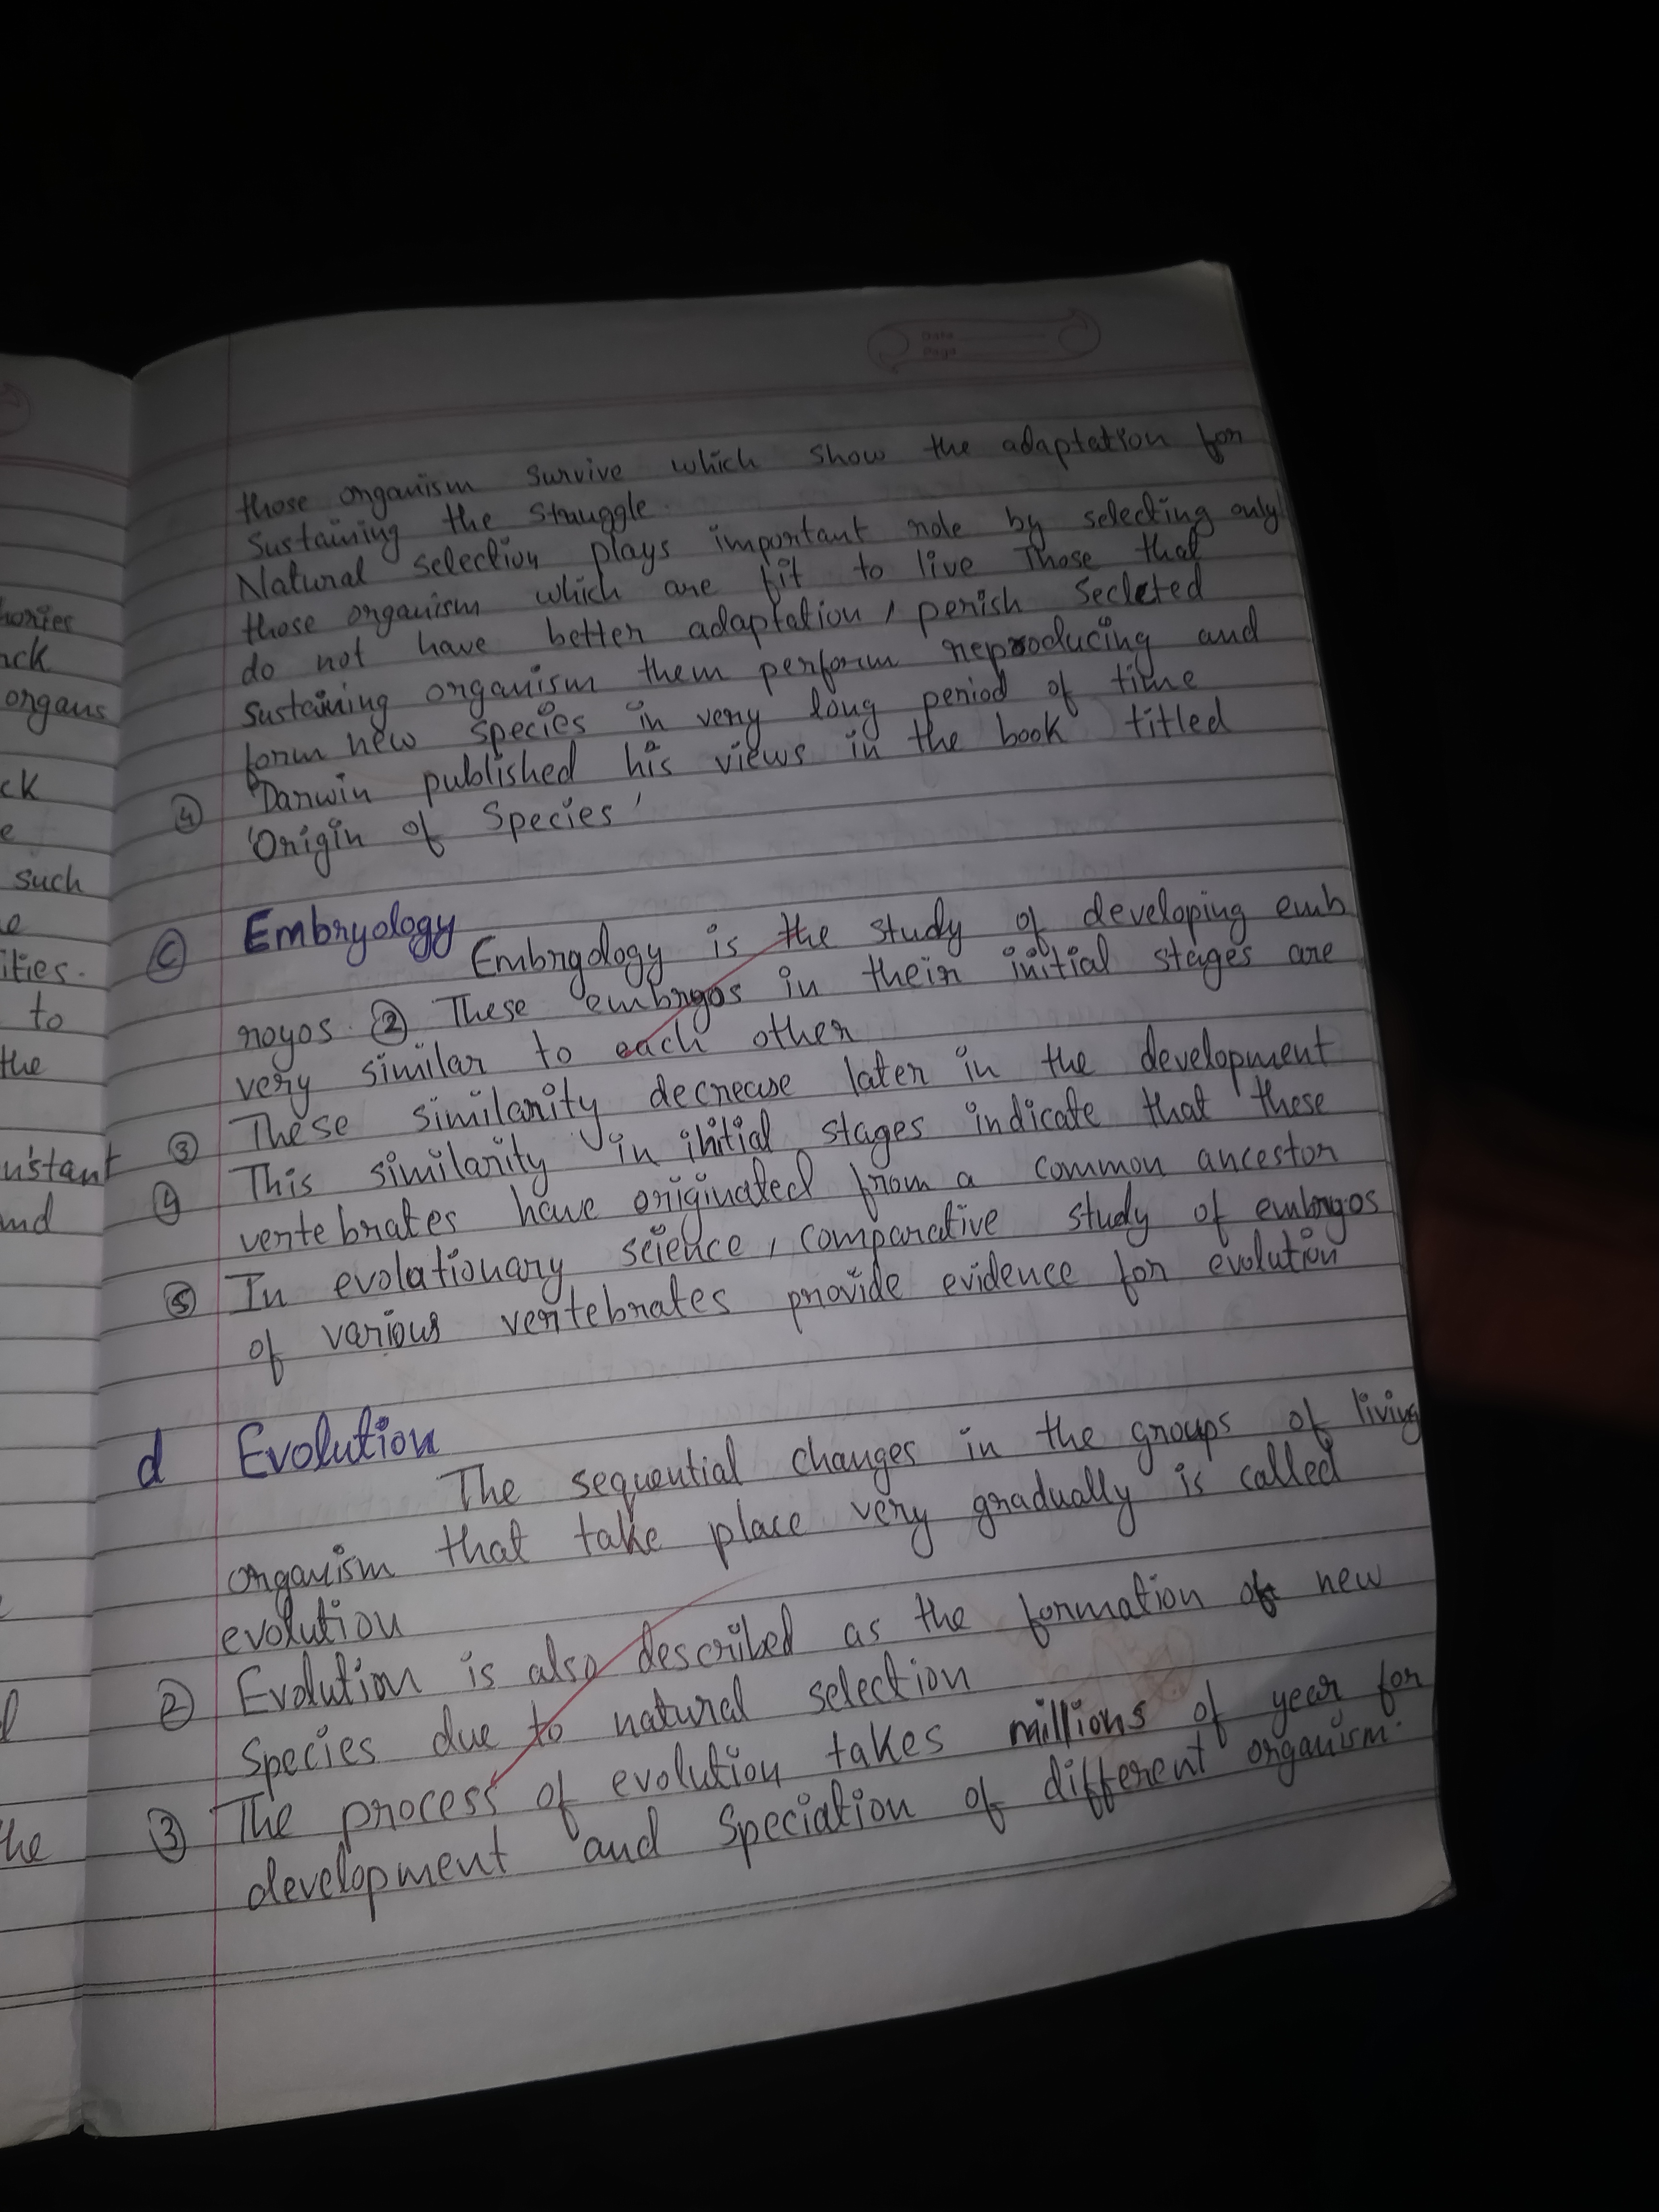 Date
Page
those organism survive which show the adaptation for
sustaining the struggle.
Natural selection plays important role by selecting only
those organism which are fit to live Those that
do not have better adaptation, perish Seclcted
sustaining organism them perform reproducing and
form new species in very long period of time
④ Darwin published his views in the book titled
'Origin of Species'
Ⓒ Embryology
Embryology is the study of developing emb
royos. ② These embryos in their initial stages are
very similar to each other
③ These similarity decrease later in the development
④ This similarity in initial stages indicate that these
vertebrates have originated from a common ancestor
⑤ In evolationary science, comparative study of embryos
of various vertebrates provide evidence for evolution
d Evolution
The sequential changes in the groups of living
organism that take place very gradually is called
evolution
② Evolution is also described as the formation of new
Species due to natural selection
③ The process of evolution takes millions of year for
development and Speciation of different organism.
organs
ck
e
such
ities.
to
the
nstant
and
the